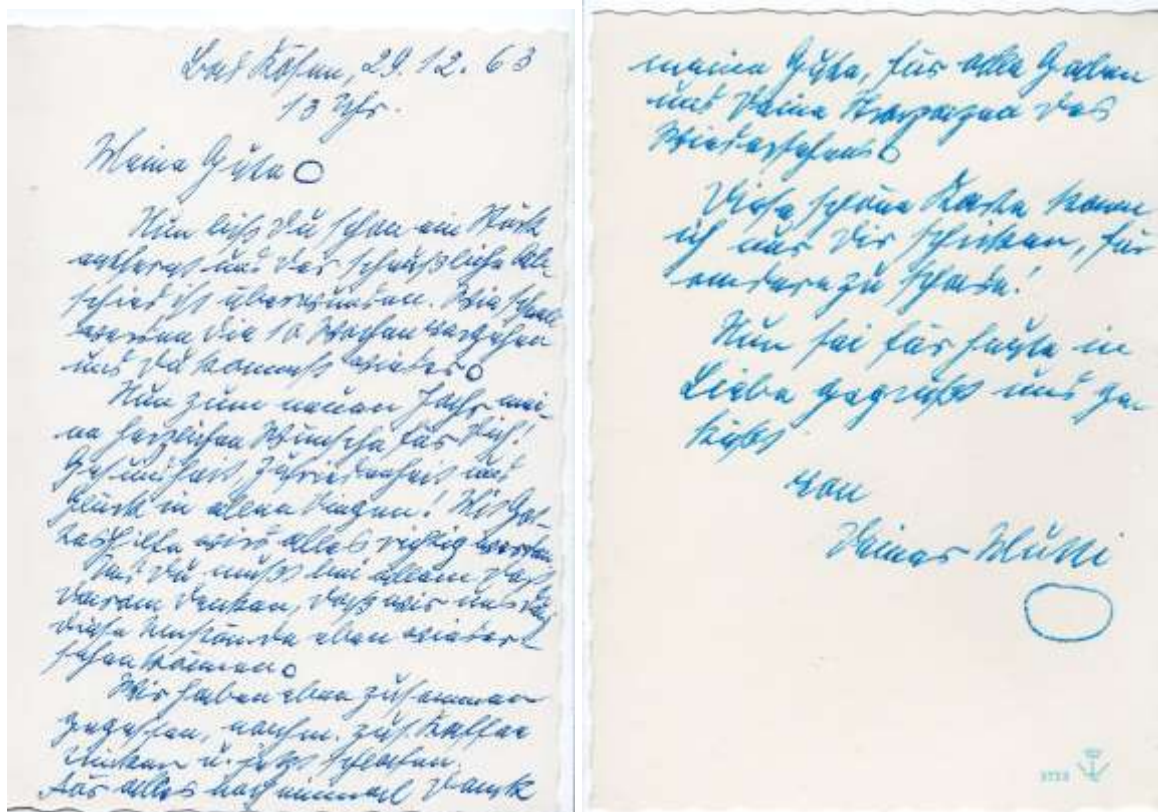 Bad Kösen, 29.12.63
13 Uhr.
Meine Gute
Nun bist Du schon ein Stück
entfernt und der scheußliche Ab-
schied ist überwunden. Wie schnell
werden die 10 Wochen vergehen
und Du kommst wieder
Nun zum neuen Jahr mei-
ne herzlichen Wünsche für Dich!
Gesundheit, Zufriedenheit und
Glück in allen Dingen! Mit Got-
tes Hilfe wird alles richtig werden
Und Du mußt bei allem doch
daran denken, daß wir uns
diese Umstände eben wieder
sehen können
Wir haben eben zusammen
gegessen, nachm. zus. Kaffee
trinken u. jetzt schlafen.
Für alles noch einmal Dank
meine Gute, für alle Gaben
und Deine des
Wiedersehens
Diese schöne Karte kann
ich nur Dir schicken, für
andere zu schade!
Nun sei für heute in
Liebe gegrüßt und ge-
küßt
von
Deiner Mutti